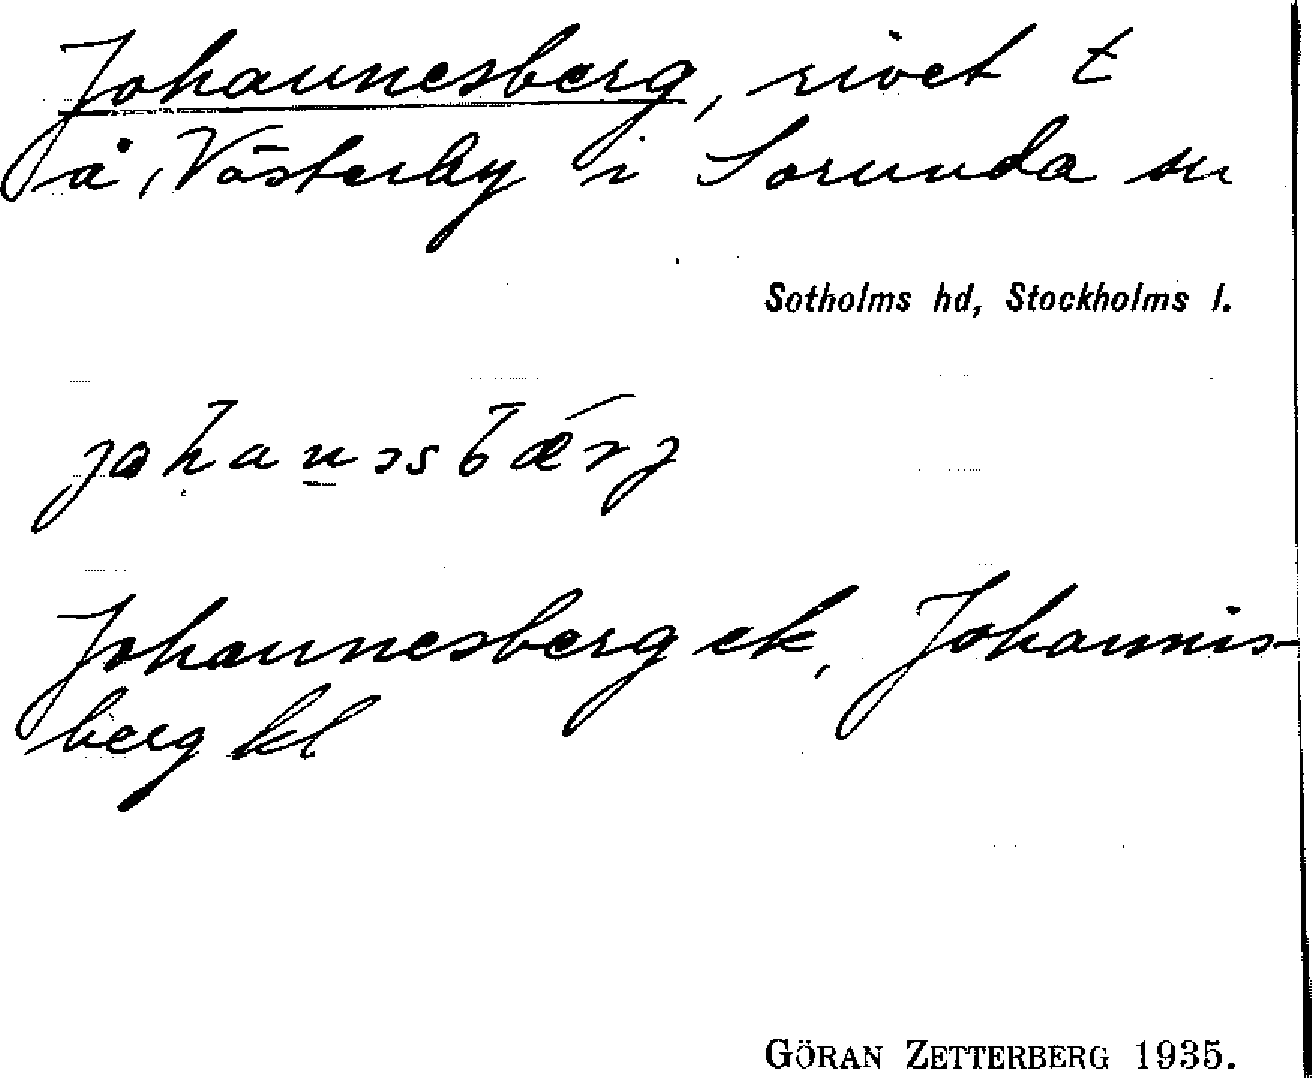 Johannesberg, rivet t
å, Västerby i Sorunda sn
Sotholms hd, Stockholms l.
johanəsbærj
Johannesberg ek, Johannis-
berg kl
GÖRAN ZETTERBERG 1935.